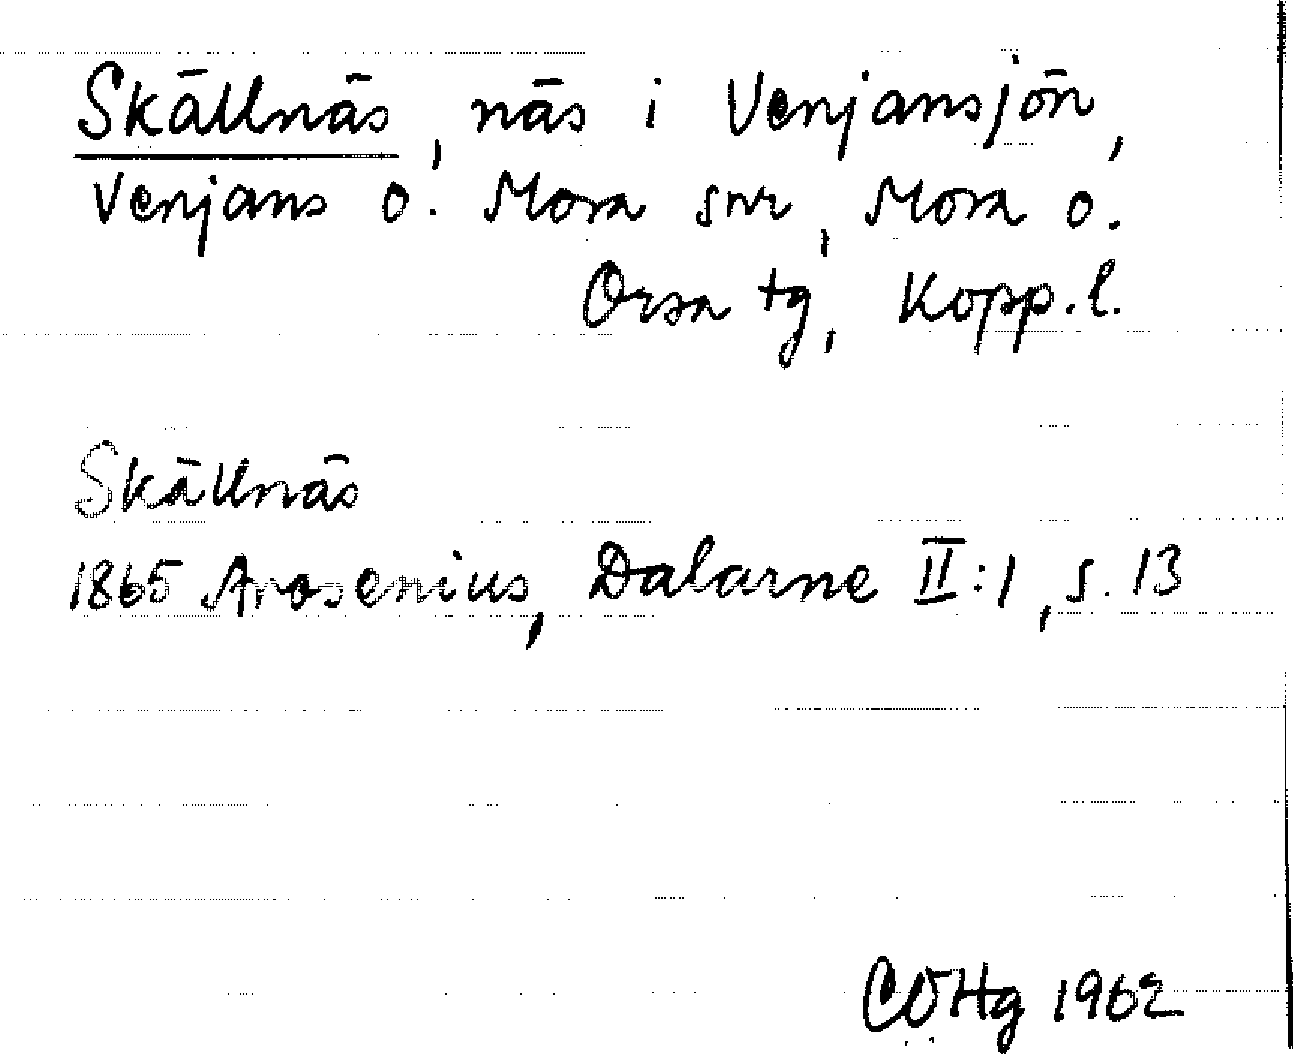 Skällnäs, näs i Venjansjön,
Venjans o. Mora snr, Mora o.
Orsa tg, Kopp. l.
Skällnäs
1865 Arosenius, Dalarne II:1, s. 13
CÖHg 1962